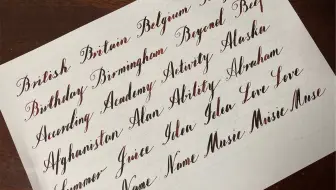 British Britain Belgium
Birthday Birmingham Beyond Bey
According Academy Activity Alaska
Afghanistan Alan Ability Abraham
Summer Juice Idea Idea Love Love
Name Name Music Music Muse